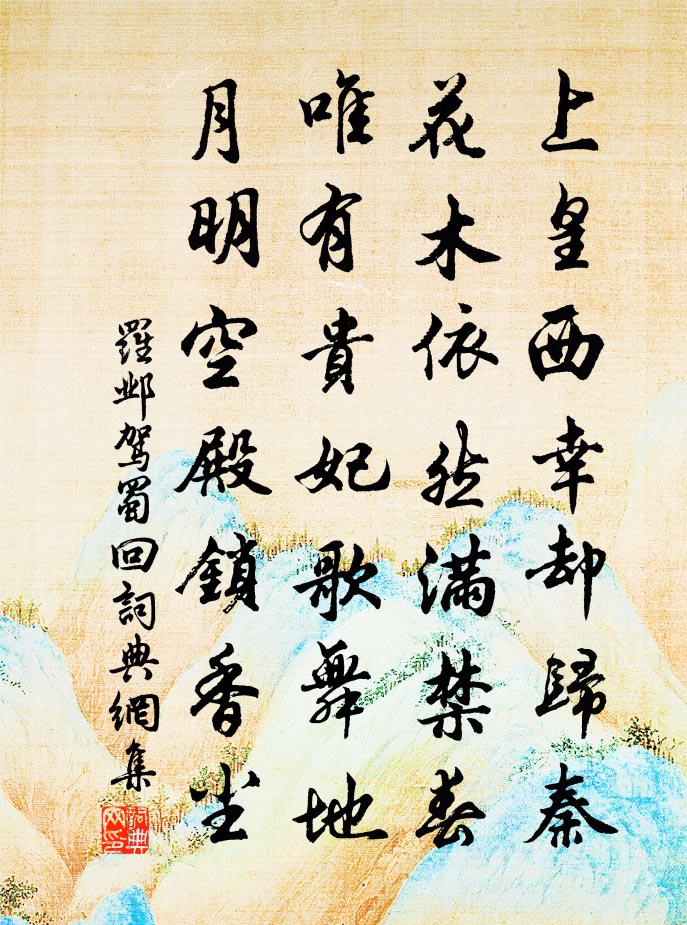 上皇西幸却歸秦
花木依然滿禁春
唯有貴妃歌舞地
月明空殿鎖香尘
羅邺駕蜀回詞典網集
詞典
网印